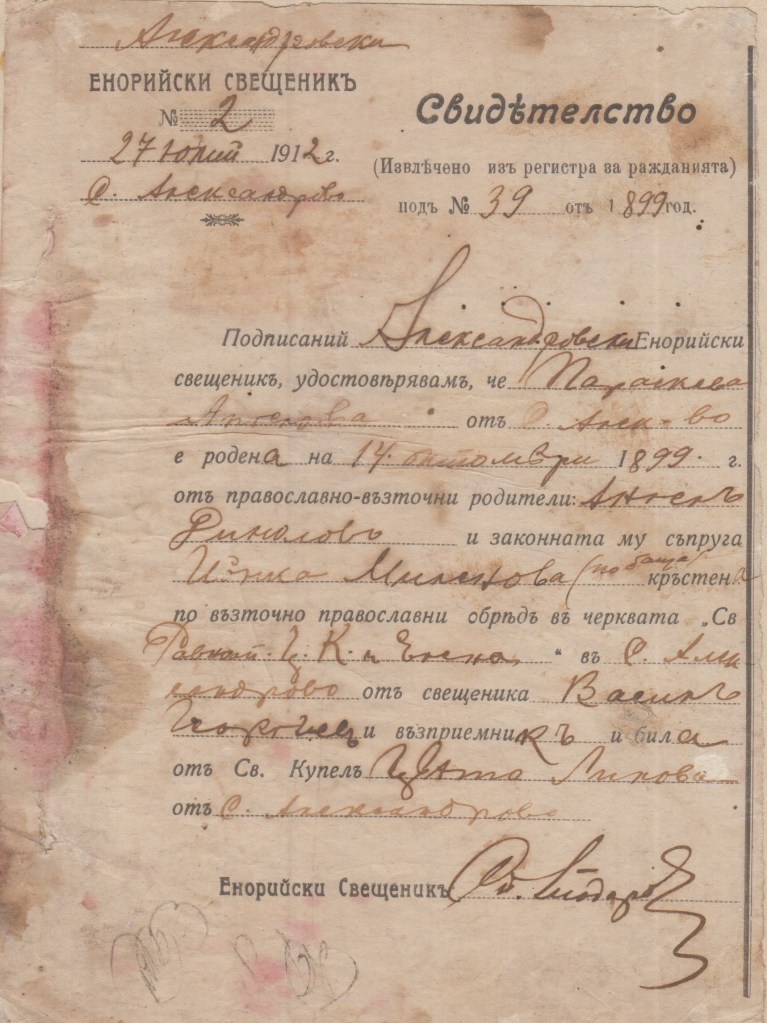 Александровски
ЕНОРИЙСКИ СВЕЩЕНИКЪ
№ 2
27 юлий 1912 г.
с. Александрово
Свидѣтелство
(Извлѣчено изъ регистра за ражданията)
подъ № 39 отъ 1899 год.
Подписаний Александровски Енорийски
свещеникъ, удостовѣрявамъ, че Параскева
Ангелова отъ с. Алек-во
е родена на 14 октомври 1899 г.
отъ православно-възточни родители: Ангелъ
и законната му съпруга
Миленова (по баща) кръстена
по възточно православни обрѣдъ въ черквата „Св
Равноап. Ц. К. и Елена“ въ с. Алек
сандрово отъ свещеника Василъ
Георгиев и възприемникъ и била
отъ Св. Купелъ Цвѣта
отъ с. Александрово
Енорийски Свещеникъ